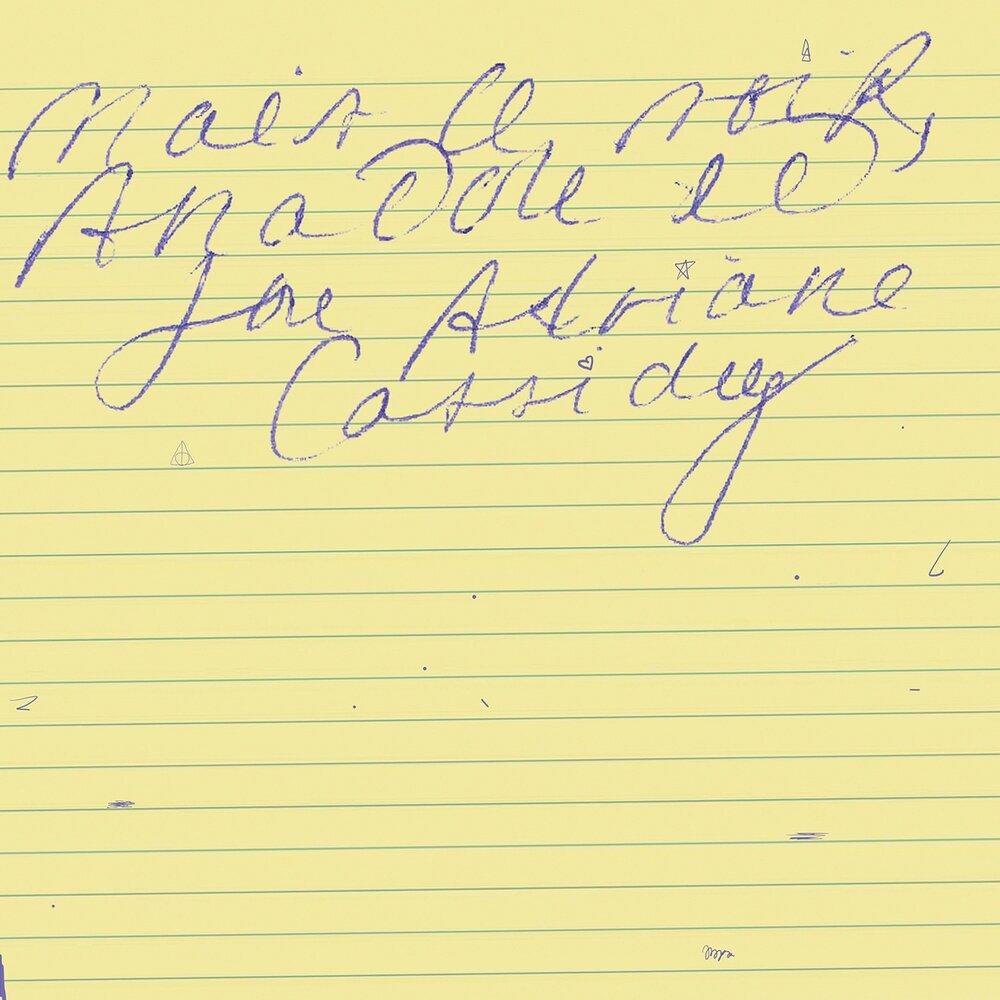 Mais le soir,
Anatole et
Adriane
Cassidy